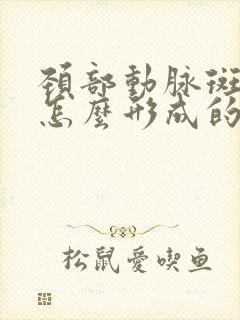 頚部動脉斑
怎麼形成的
松鼠愛喫鱼